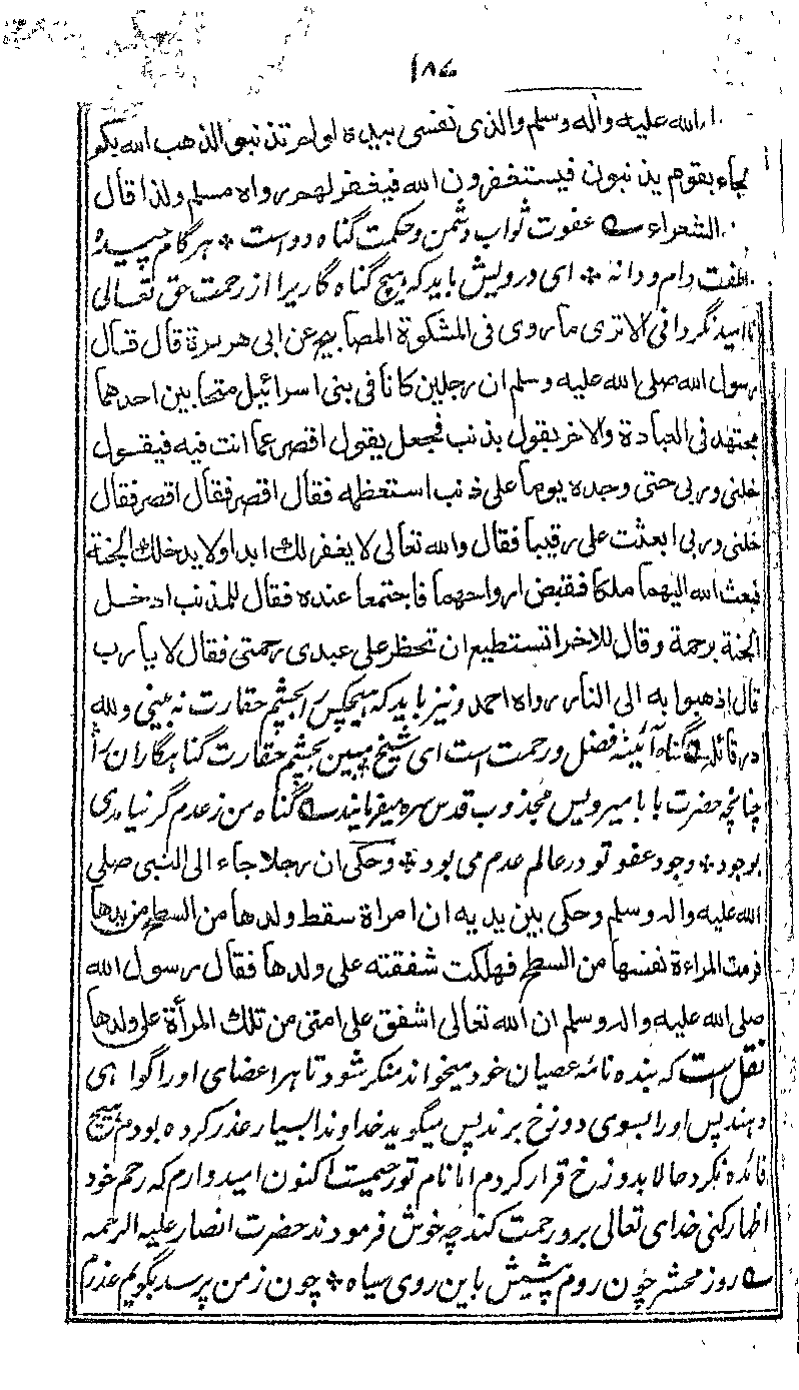 ١٨٤
الله عليه واله وسلم والذي نفسي بيده لو لم تذنبوا لذهب الله بكم
بجاء بقوم يذنبون فيستغفرون الله فيغفر لهم رواه مسلم ولذا قال
الشعراء عفوت ثواب دشمن وحكمت گناه دوست * هر گام چیده
دام ودانه * ای درویش باید که هیچ گناه گاریرا از رحمت حق تعالی
ناامید نگردانی الاتری ماروی فی المشکوة المصابیح عن ابی هریرة قال قال
رسول الله صلی الله علیه وسلم ان رجلین کانا فی بنی اسرائیل متحابین احدهما
مجتهد فی العبادة والاخر یقول بذنب فجعل یقول اقصر عما انت فیه فیقول
خلنی وربی حتی وجده یوما علی ذنب استعظمه فقال اقصر فقال اقصر فقال
خلنی وربی ابعثت علی رقیبا فقال والله تعالی لا یغفر لك ابدا ولا یدخلك الجنة
فبعث الله الیهما ملکا فقبض ارواحهما فاجتمعا عنده فقال للمذنب ادخل
الجنة برحمة وقال للاخر اتستطیع ان تحظر علی عبدی رحمتی فقال لا یا رب
قال اذهبوا به الی النار رواه احمد ونیز باید که هیچکس را بچشم حقارت نه بینی ولله
در قائله گناه آئینهٔ فضل ورحمت است ای شیخ مبین بچشم حقارت گناهگاران را
چنانچه حضرت بابا میر ویس مجذوب قدس سره میفرمایند گناه من ز عدم گر نیامدی
بوجود * وجود عفو تو در عالم عدم می بود * وحکی ان رجلا جاء الی النبی صلی
الله علیه واله وسلم وحکی بین یدیه ان امراة سقط ولدها من السطح من یدها
فرمت المراءة نفسها من السطح فهلکت شفقته علی ولدها فقال رسول الله
صلی الله علیه واله وسلم ان الله تعالی اشفق علی امتی من تلك المرأة علی ولدها
نقل است که بنده نامه عصیان خود میخواند منکر شود تا هر اعضای او را گواهی
دهند پس او را بسوی دوزخ برند پس میگوید خداوندا بسیار عذر کرده بودم هیچ
فائده نکرد حالا بدوزخ قرار کردم اما نام تو رحیمست اکنون امیدوارم که رحم خود
اظهار کنی خدای تعالی برو رحمت کند چه خوش فرمودند حضرت انصار علیه الرحمه
روز محشر چون روم پیشش باین روی سیاه * چون ز من پرسد بگویم عذرم